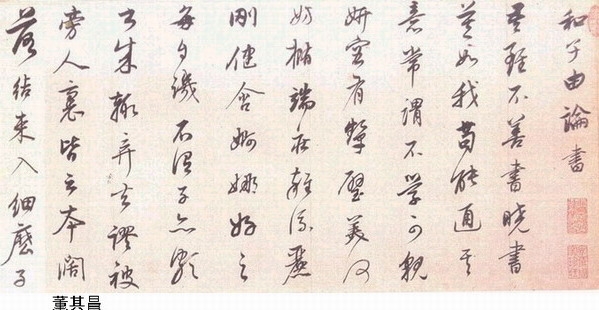 和子由論書
吾雖不善書曉書
莫如我苟能通其
意常謂不學可貌
妍容有顰璧美何
妨楕端莊雜流麗
剛健含婀娜好之
每自譏不謂子亦頗
書成輒弃去謬被
旁人裹皆云本闊
落結束入細麼子
董其昌